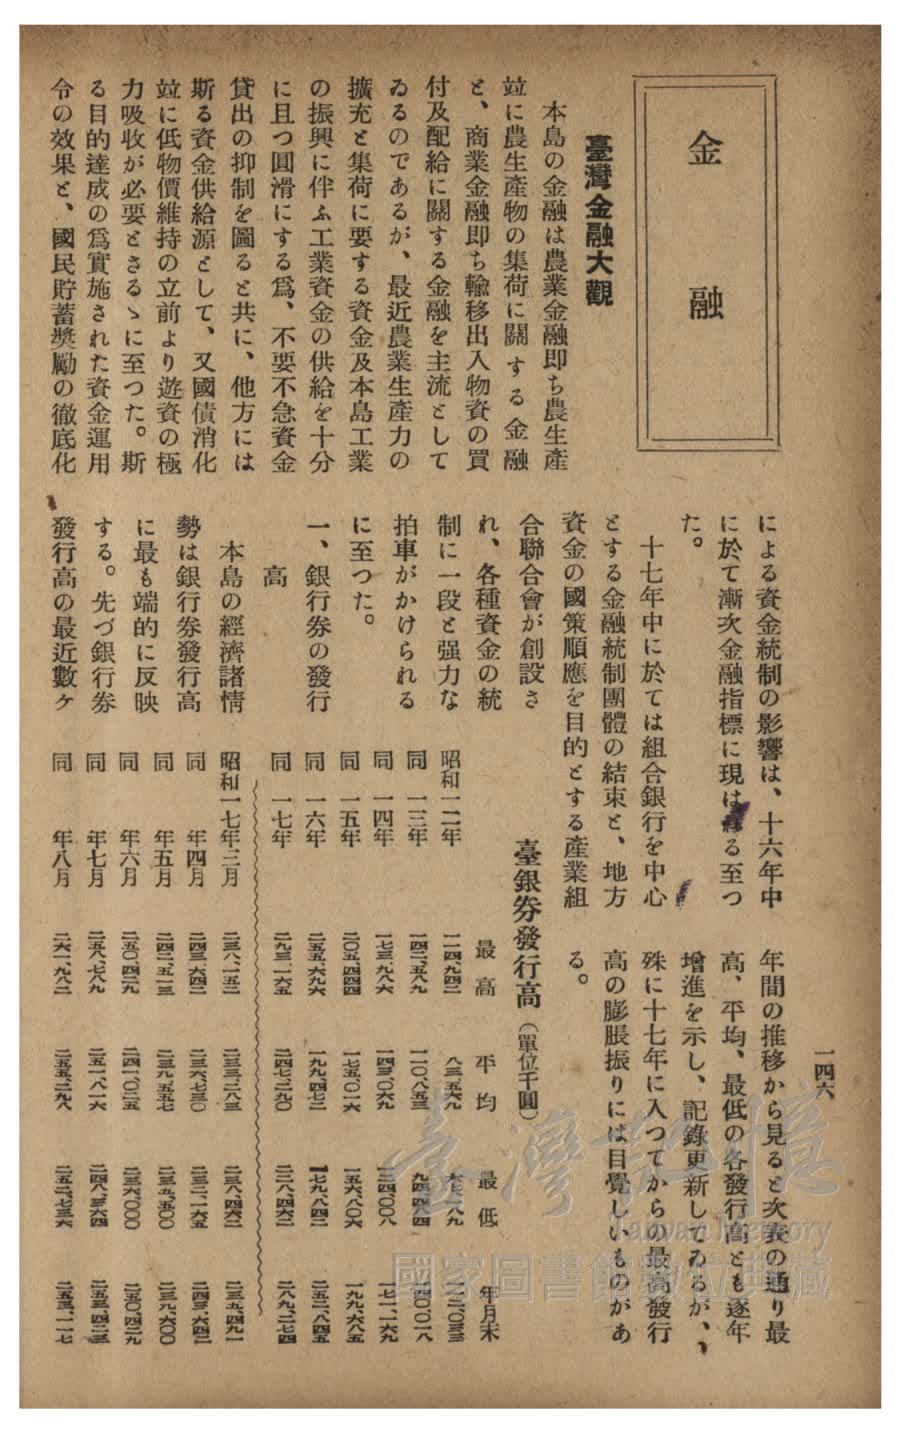 一四六
金融
臺灣金融大觀
本島の金融は農業金融卽ち農生産
竝に農生產物の集荷に關する金融
と、商業金融卽ち輸移出入物資の買
付及配給に關する金融を主流として
ゐるのであるが、最近農業生產力の
擴充と集荷に要する資金及本島工業
の振興に伴ふ工業資金の供給を十分
に且つ圓滑にする爲、不要不急資金
貸出の抑制を圖ると共に、他方には
斯る資金供給源として、又國債消化
竝に低物價維持の立前より遊資の極
力吸收が必要とさるゝに至つた。斯
る目的達成の爲實施された資金運用
令の效果と、國民貯蓄奬勵の徹底化
による資金統制の影響は、十六年中
に於て漸次金融指標に現はるる至つ
た。
十七年中に於ては組合銀行を中心
とする金融統制團體の結束と、地方
資金の國策順應を目的とする產業組
合聯合會が創設さ
れ、各種資金の統
制に一段と强力な
拍車がかけられる
に至つた。
一、銀行券の發行
高
本島の經濟諸情
勢は銀行券發行高
に最も端的に反映
する。先づ銀行券
發行高の最近數ヶ
年間の推移から見ると次表の通り最
高、平均、最低の各發行高とも逐年
增進を示し、記錄更新してゐるが、
殊に十七年に入つてからの最高發行
高の膨脹振りには目覺しいものがあ
る。
臺銀券發行高(單位千圓)
最高 平均 最低 年月末
昭和一二年 一一四,九四二 八三,五六九 六七,一八九 一一二,〇三三
同 一三年 一四二,五八九 一一〇,八五三 九四,四八四 一四〇,〇一八
同 一四年 一七三,九八六 一四三,〇六九 一三四,〇〇八 一七一,一六九
同 一五年 二〇五,四四四 一七五,〇一六 一五六,八〇六 一九九,六八五
同 一六年 二五五,六九六 一九九,四七二 一七九,八四二 二五二,八四五
同 一七年 二九三,一六五 二四七,二九〇 二二八,四六二 二八九,二七四
昭和一七年三月 二三八,一五二 二三三,二八三 二二八,四六二 二三五,四九一
同 年四月 二四三,六四二 二三六,七三〇 二三二,一六五 二四三,六四二
同 年五月 二四二,五一三 二三九,五五七 二三五,五〇〇 二三九,六〇〇
同 年六月 二五〇,四二九 二四一,〇二五 二三六,〇〇〇 二五〇,四二九
同 年七月 二五八,七八九 二五一,八一六 二四八,三六四 二五三,四二三
同 年八月 二六一,九八二 二五五,二九八 二五二,七三六 二五三,一一七
臺灣記憶
Taiwan Memory
國家圖書館數位典藏